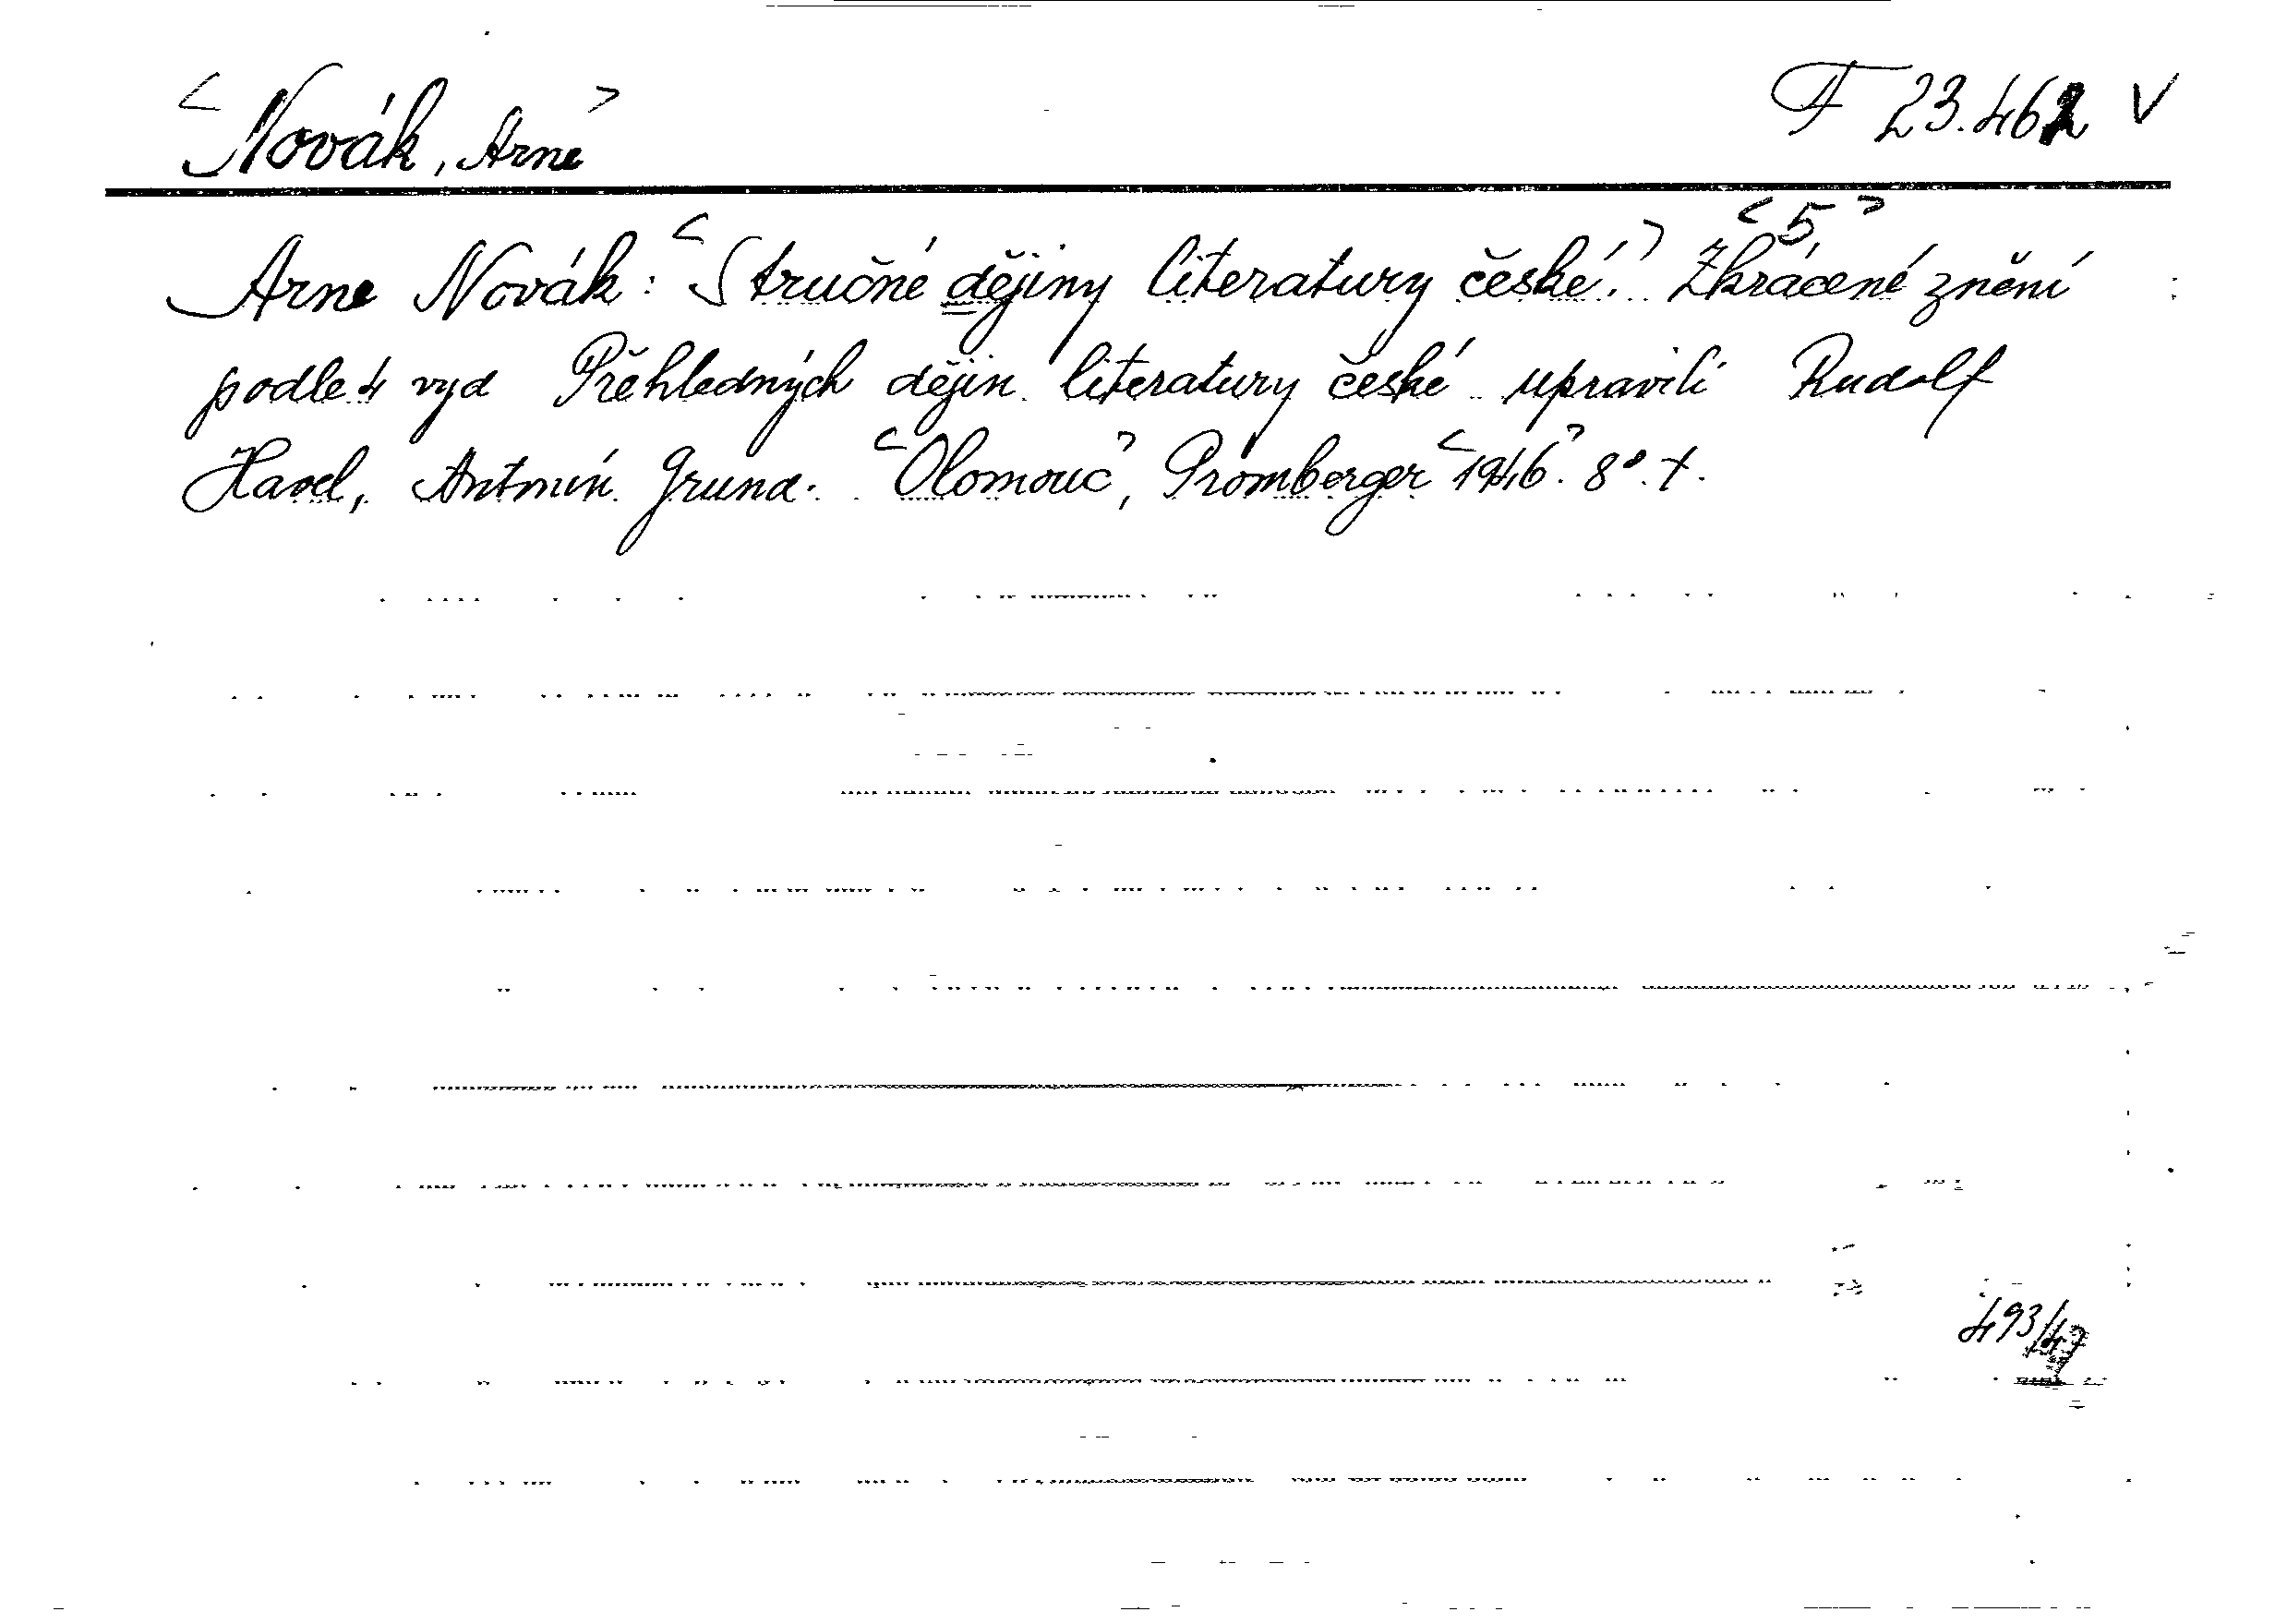 <Novák, Arne> F 23.462 V
<5>
Arne Novák: <Stručné dějiny literatury české.> Zkrácené znění
podle 4 vyd Přehledných dějin literatury české upravili Rudolf
Havel, Antonín Grund. <Olomouc>, Promberger <1946>. 8°. t.
493/47